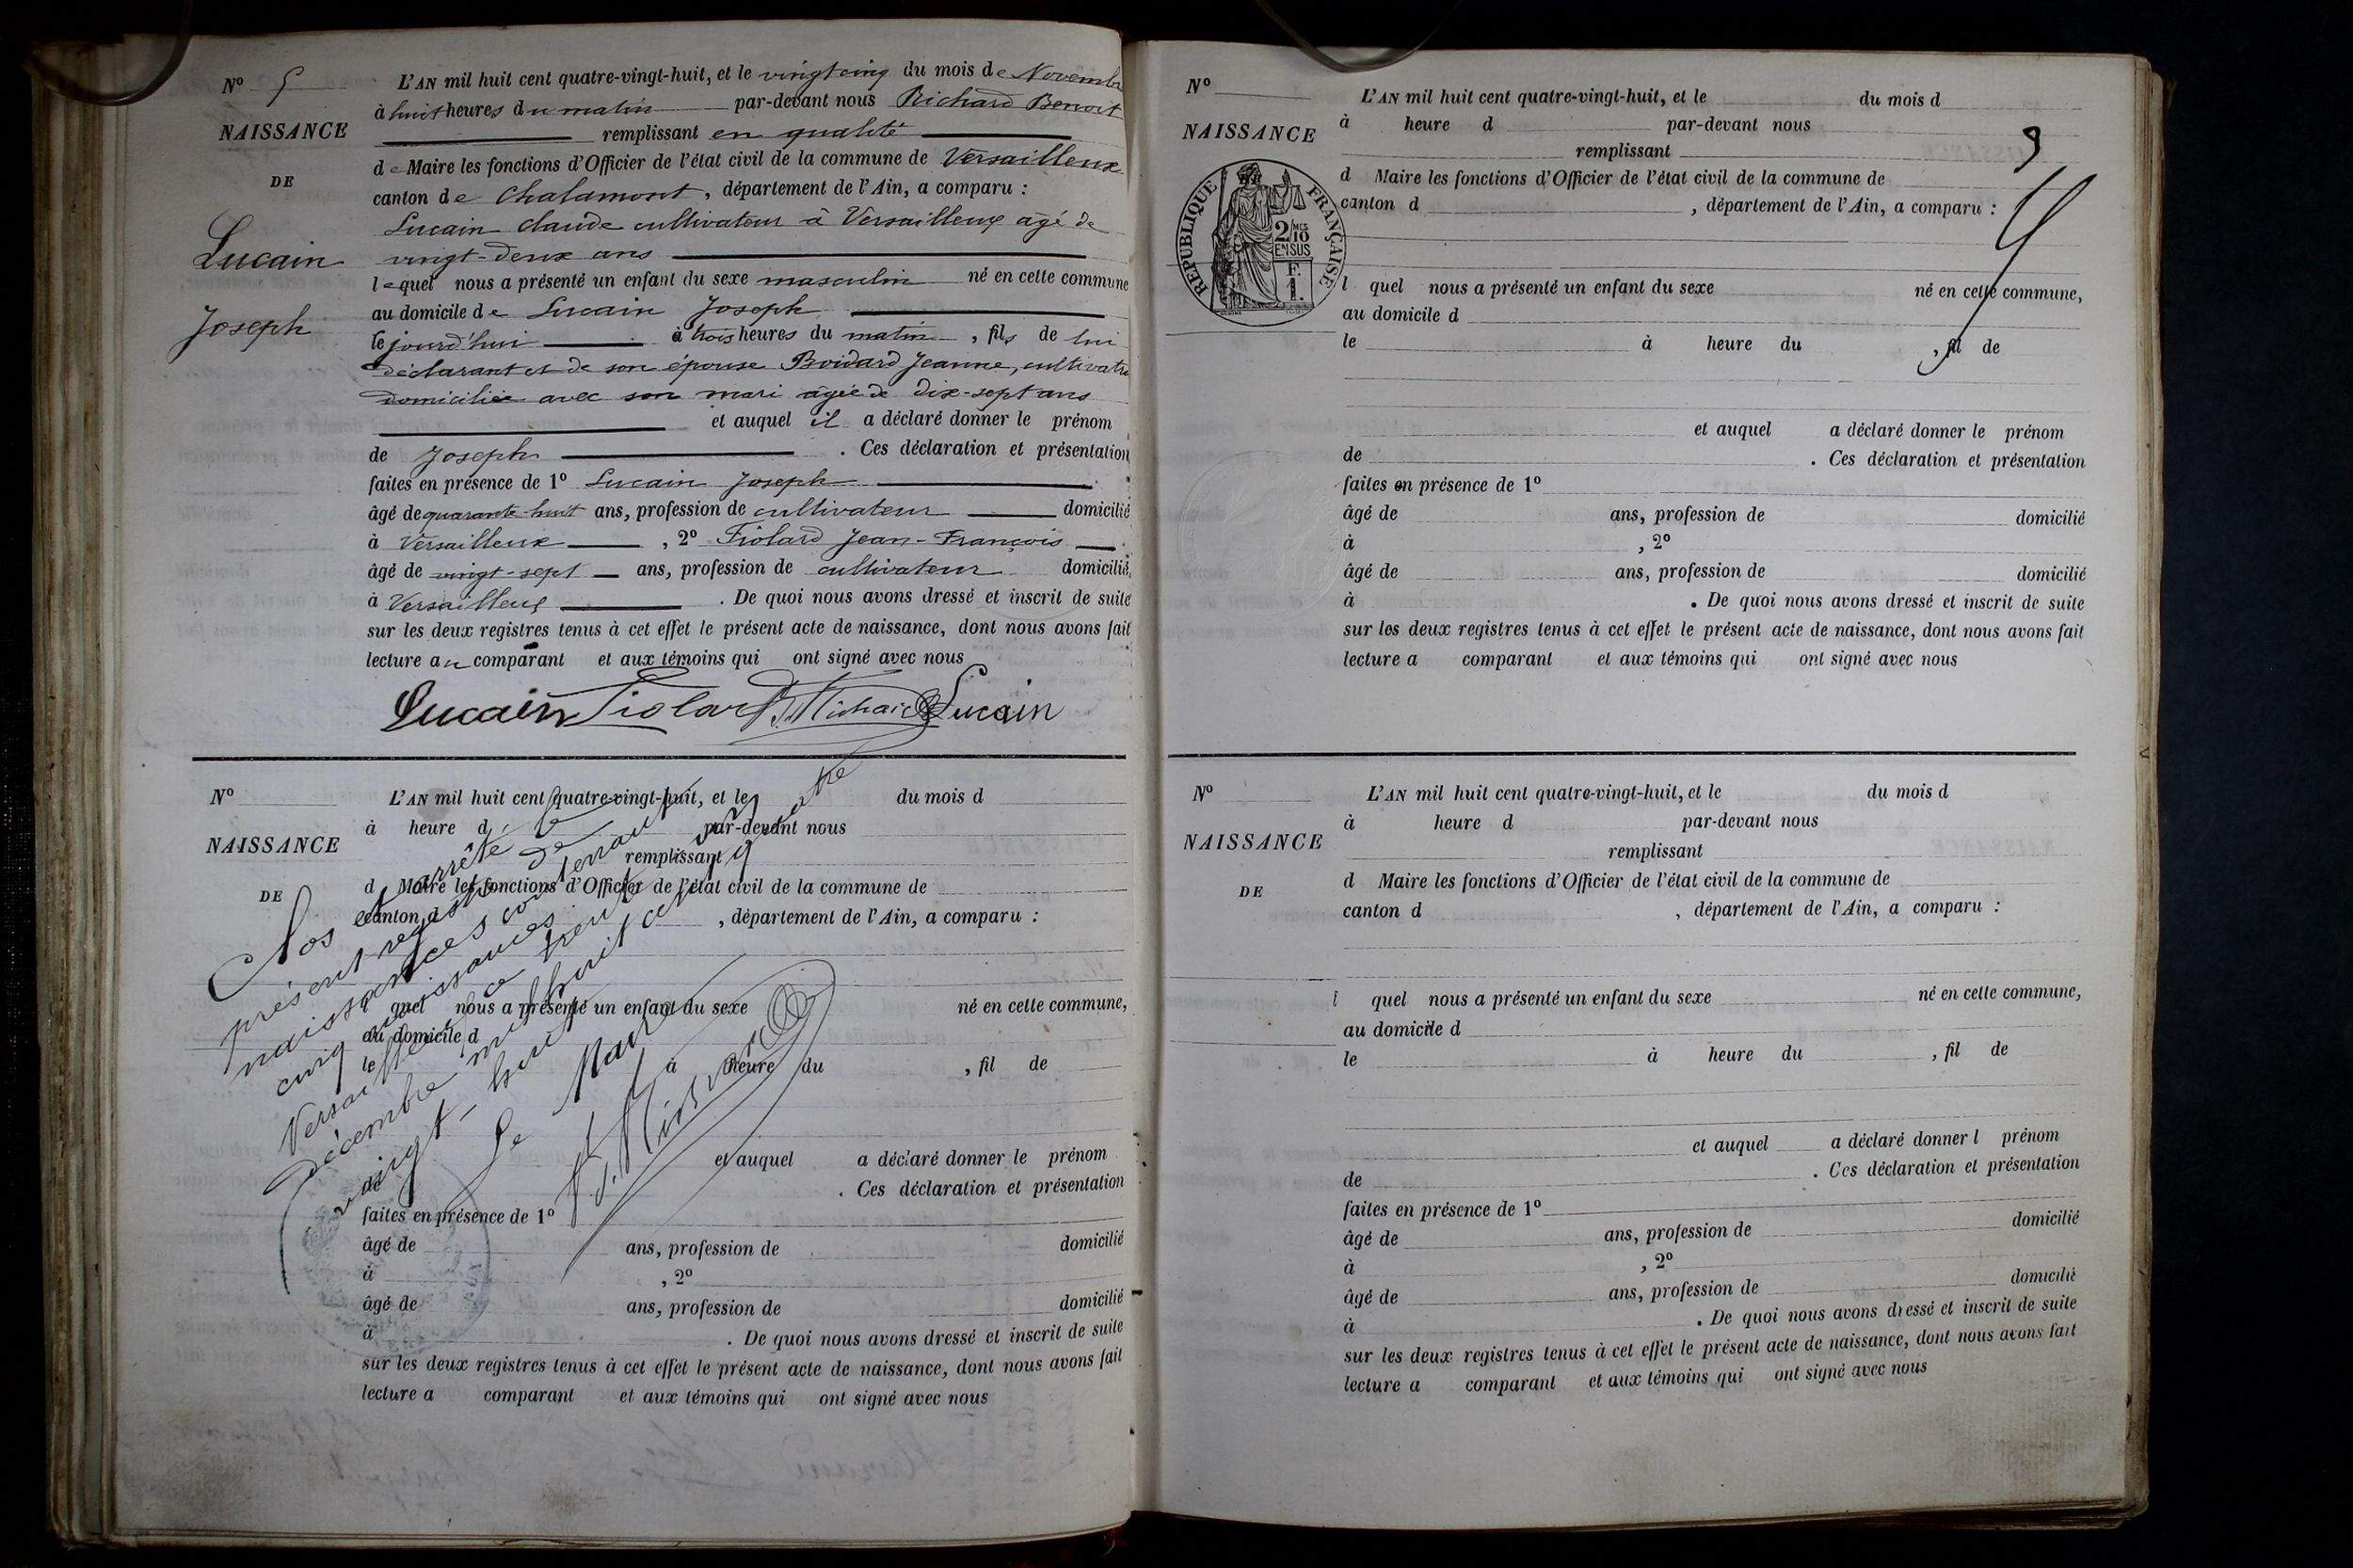 N° 5
NAISSANCE
DE
Lucain
Joseph
L'AN mil huit cent quatre-vingt-huit, et le vingt cinq du mois de Novembre
à huit heures du matin par-devant nous Richard Benoit
remplissant en qualité
de Maire les fonctions d'Officier de l'état civil de la commune de Versailleux
canton de Chalamont, département de l'Ain, a comparu :
Lucain claude cultivateur à Versailleux agé de
vingt-deux ans
lequel nous a présenté un enfant du sexe masculin né en cette commune
au domicile de Lucain Joseph
le jourd'hui à trois heures du matin, fils de lui
déclarant et de son épouse Boidard Jeanne, cultivatr
domiciliée avec son mari âgée de dix-sept ans
et auquel il a déclaré donner le prénom
de Joseph . Ces déclaration et présentation
faites en présence de 1° Lucain Joseph
âgé de quarante huit ans, profession de cultivateur domicilié
à Versailleux , 2° Fiolard Jean-François
âgé de vingt-sept ans, profession de cultivateur domicilié
à Versailleux . De quoi nous avons dressé et inscrit de suite
sur les deux registres tenus à cet effet le présent acte de naissance, dont nous avons fait
lecture au comparant et aux témoins qui ont signé avec nous
Lucain Fiolard Richard Lucain
N°
NAISSANCE
DE
L'AN mil huit cent quatre-vingt-huit, et le du mois d
à heure d par-devant nous
remplissant
d Maire les fonctions d'Officier de l'état civil de la commune de
canton d , département de l'Ain, a comparu :
l quel nous a présenté un enfant du sexe né en cette commune,
au domicile d
le à heure du , fil de
et auquel a déclaré donner le prénom
de . Ces déclaration et présentation
faites en présence de 1°
âgé de ans, profession de domicilié
à , 2°
âgé de ans, profession de domicilié
à . De quoi nous avons dressé et inscrit de suite
sur les deux registres tenus à cet effet le présent acte de naissance, dont nous avons fait
lecture a comparant et aux témoins qui ont signé avec nous
Clos et arrêté le
présent registre de
naissances contenant
cinq naissances
Versailleux ce trente un
décembre mil huit cent quatre
vingt-huit
Le Maire
Richard
N°
NAISSANCE
RÉPUBLIQUE FRANÇAISE
2/10 MES
EN SUS
F.
1.
L'AN mil huit cent quatre-vingt-huit, et le du mois d
à heure d par-devant nous
remplissant
d Maire les fonctions d'Officier de l'état civil de la commune de
canton d , département de l'Ain, a comparu :
l quel nous a présenté un enfant du sexe né en cette commune,
au domicile d
le à heure du , fil de
et auquel a déclaré donner le prénom
de . Ces déclaration et présentation
faites en présence de 1°
âgé de ans, profession de domicilié
à , 2°
âgé de ans, profession de domicilié
à . De quoi nous avons dressé et inscrit de suite
sur les deux registres tenus à cet effet le présent acte de naissance, dont nous avons fait
lecture a comparant et aux témoins qui ont signé avec nous
N°
NAISSANCE
DE
L'AN mil huit cent quatre-vingt-huit, et le du mois d
à heure d par-devant nous
remplissant
d Maire les fonctions d'Officier de l'état civil de la commune de
canton d , département de l'Ain, a comparu :
l quel nous a présenté un enfant du sexe né en cette commune,
au domicile d
le à heure du , fil de
et auquel a déclaré donner l prénom
de . Ces déclaration et présentation
faites en présence de 1°
âgé de ans, profession de domicilié
à , 2°
âgé de ans, profession de domicilié
à . De quoi nous avons dressé et inscrit de suite
sur les deux registres tenus à cet effet le présent acte de naissance, dont nous avons fait
lecture a comparant et aux témoins qui ont signé avec nous